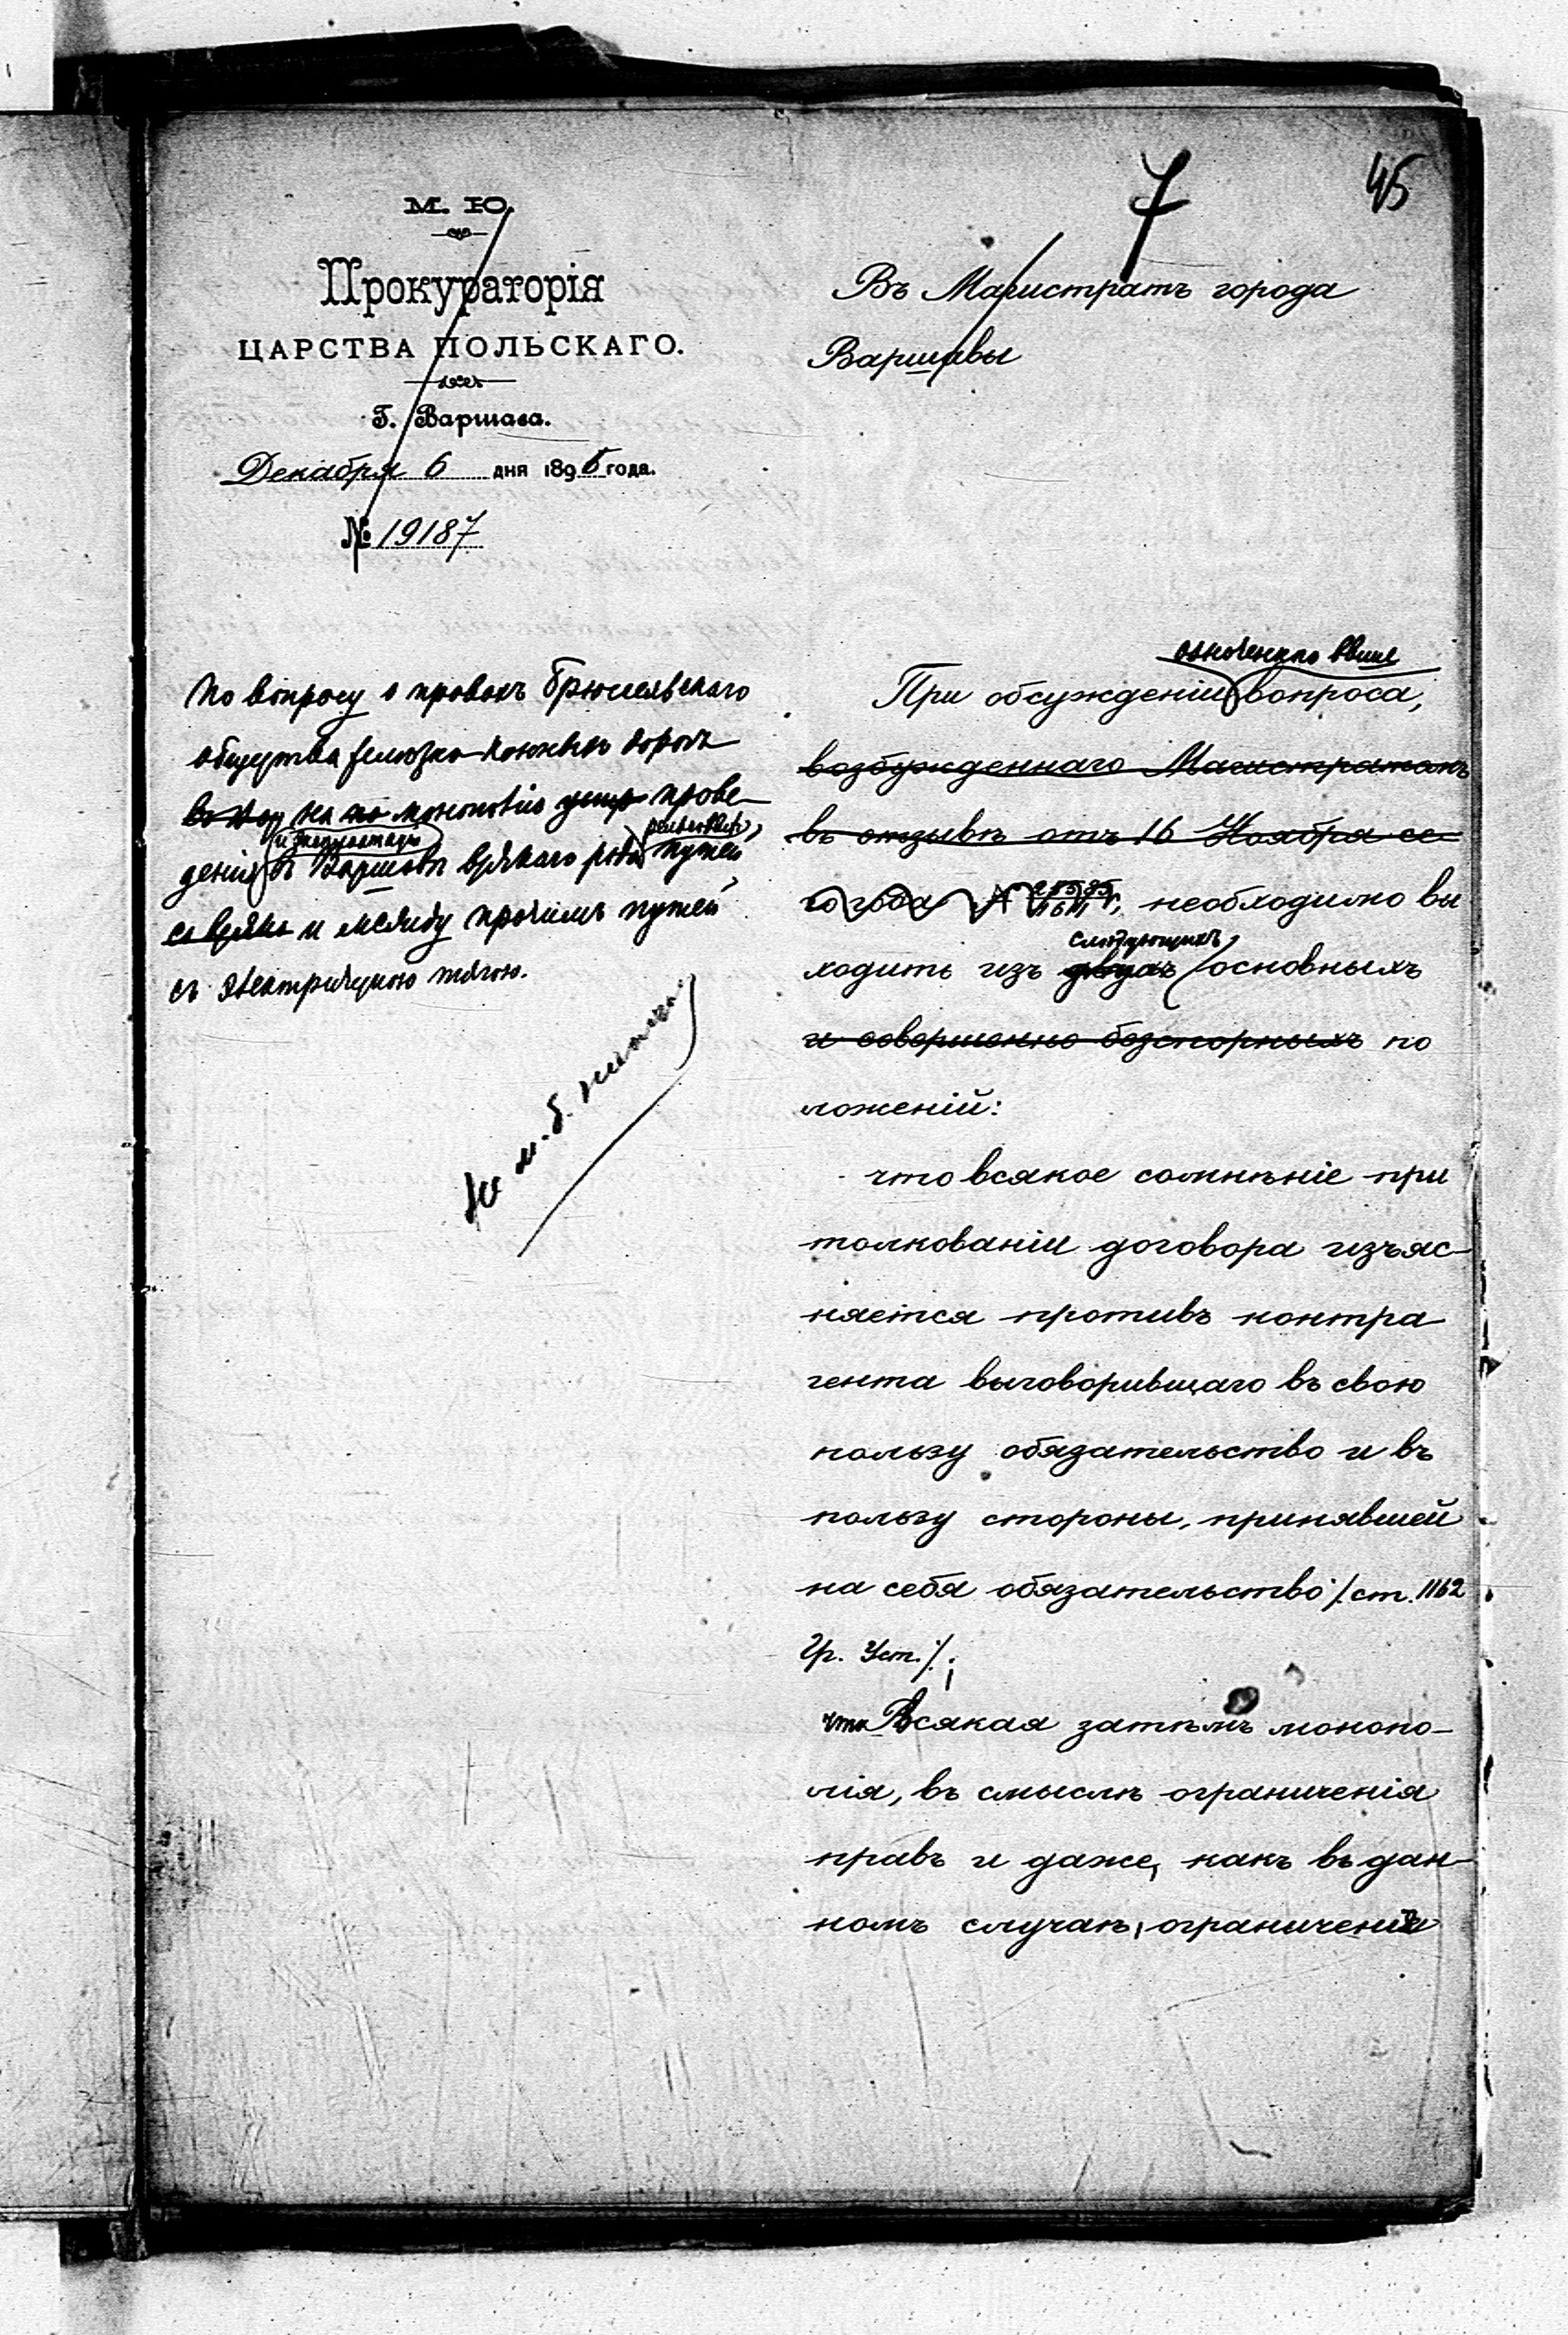 7
45
М. Ю.
Прокураторія
ЦАРСТВА ПОЛЬСКАГО.
Г. Варшава.
Декабря 6 дня 1895 года.
№ 19187
По вопросу о правахъ Брюссельскаго
общества желѣзно-конныхъ дорогъ
на монополію прове-
денія и эксплоатаціи въ Варшавѣ всякаго рода рельсовыхъ путей
и между прочимъ путей
съ электрическою тягою.
Въ Магистратъ города
Варшавы
означеннаго выше
При обсужденіи вопроса,
возбужденнаго Магистратомъ
въ отзывѣ отъ 16 Ноября се-
го года № необходимо вы
слѣдующихъ
ходить изъ двухъ основныхъ
и совершенно безспорныхъ по
ложеній:
что всякое сомнѣніе при
толкованіи договора изъяс-
няется противъ контра
гента выговорившаго въ свою
пользу обязательство и въ
пользу стороны, принявшей
на себя обязательство /. ст. 1162
Гр. Уст. /. ;
что Всякая затѣмъ монопо-
лія, въ смыслѣ ограниченія
правъ и даже, какъ въ дан-
номъ случаѣ, ограниченія